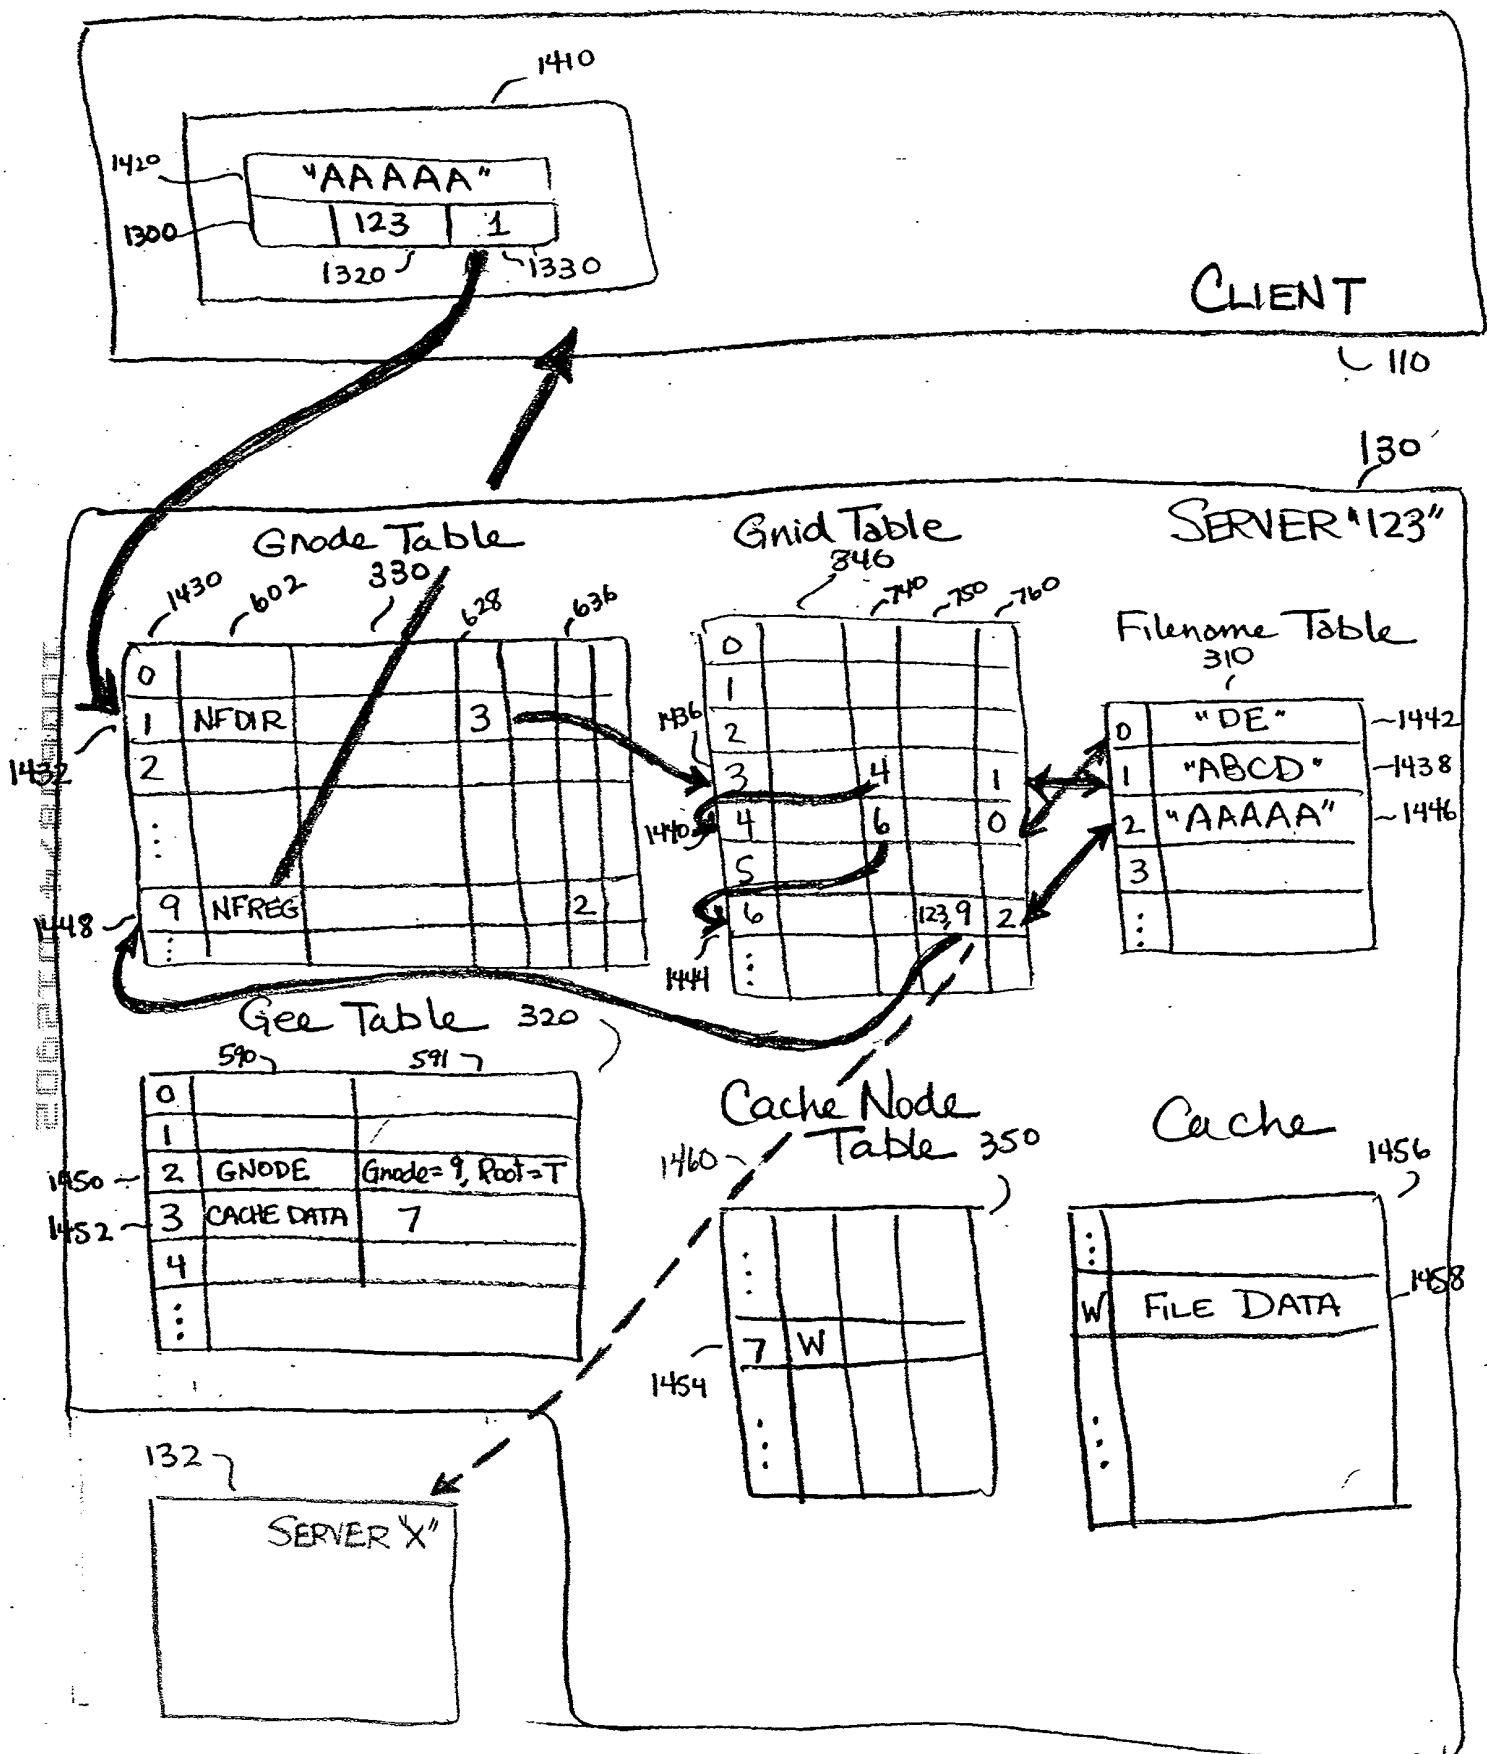 1410
1420
"AAAAA"
1300
123 1
1320 1330
CLIENT
110
130
SERVER "123"
Gnode Table
1430 602 330 628 636
0
1 NFDIR 3
1432
2
9 NFREG 2
1448
Gnid Table
346
740 750 760
0
1
1436
2
3 4 1
1440
4 6 0
5
6 123,9 2
1444
Filename Table
310
0 "DE" 1442
1 "ABCD" 1438
2 "AAAAA" 1446
3
Gee Table 320
590 591
0
1
1450 2 GNODE Gnode=9, Root=T
1452 3 CACHE DATA 7
4
Cache Node
Table 350
1460
7 W
1454
Cache
1456
W FILE DATA
1458
132
SERVER "X"